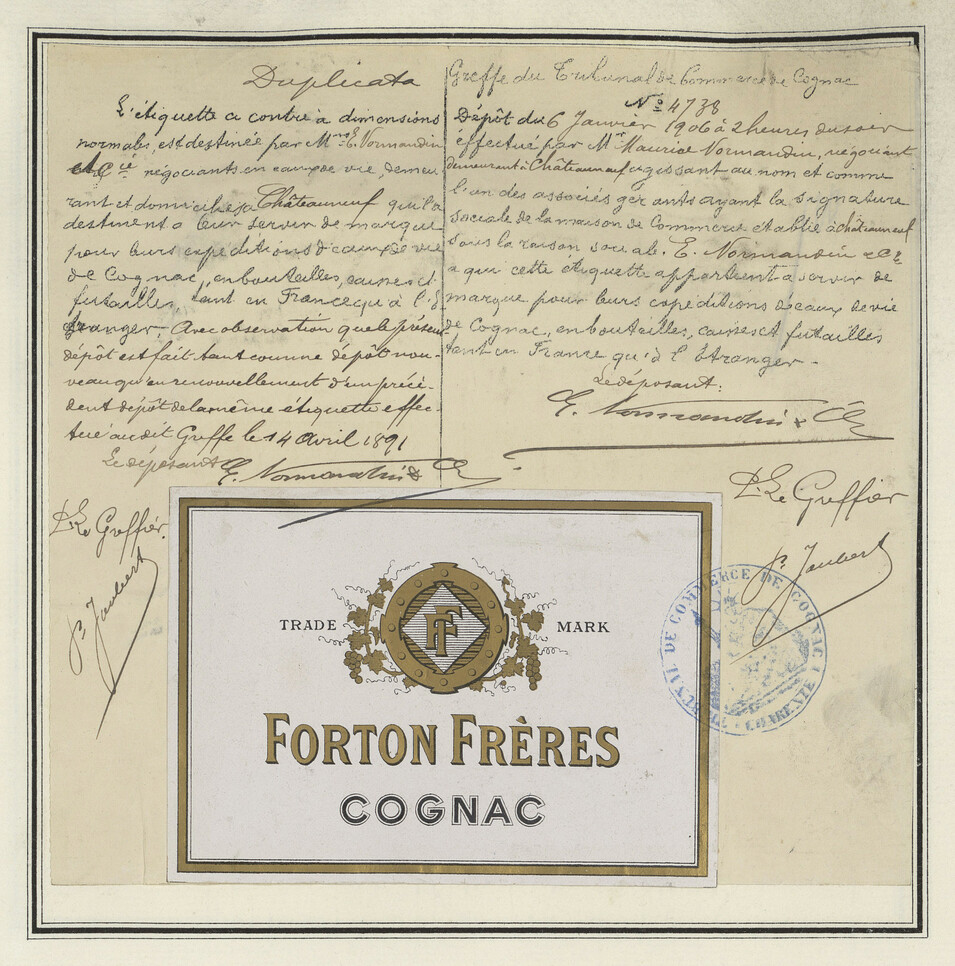 Duplicata
L'étiquette ci contre à dimensions
normales, est destinée par Mrs E. Normandin
et Cie négociants en eaux de vie, demeu
rant et domiciliés à Châteauneuf qui la
destinent à leur servir de marque
pour leurs expéditions d'eaux de vie
de Cognac, en bouteilles, caisses et
futailles, tant en France qu'à l'É
tranger. Avec observation que le présent
dépôt est fait tant comme dépôt nou-
veau qu'en renouvellement d'un précé-
dent dépôt de la même étiquette effec-
tué au dit Greffe le 14 avril 1891
Le déposant E. Normandin & Cie
Pr Le Greffier.
P. Jaubert
Greffe du Tribunal de Commerce de Cognac
No 4738
Dépôt du 6 Janvier 1906 à 2 heures du soir
effectué par Mr Maurice Normandin, négociant
demeurant à Châteauneuf agissant au nom et comme
l'un des associés gérants ayant la signature
sociale de la maison de Commerce établie à Châteauneuf
sous la raison sociale. E. Normandin & Cie
à qui cette étiquette appartient à servir de
marque pour leurs expéditions d'eaux de vie
de Cognac, en bouteilles, caisses et futailles
tant en France qu'à l'Étranger.-
Le déposant:
E. Normandin & Cie
Pr Le Greffier
P. Jaubert
TRIBUNAL DE COMMERCE DE COGNAC
CHARENTE
TRADE MARK
FF
FORTON FRÈRES
COGNAC